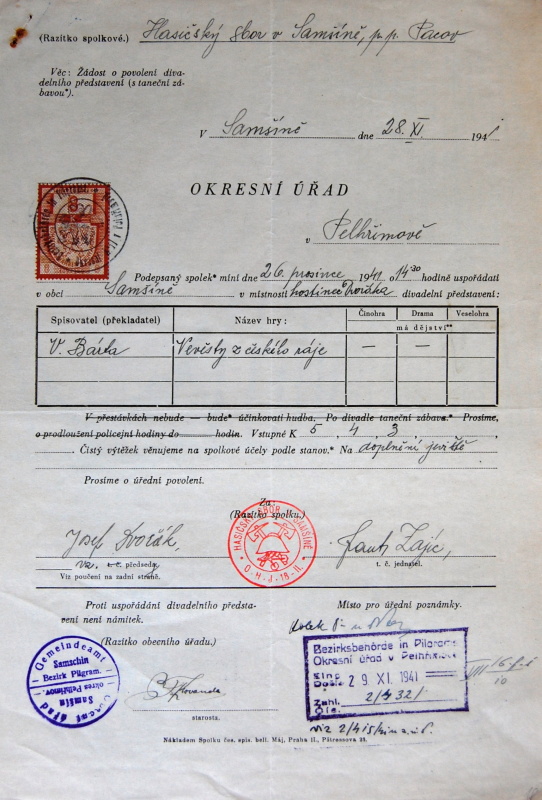 (Razítko spolkové.) Hasičský sbor v Samšíně, p.p. Pacov
Věc: Žádost o povolení diva-
delního představení (s taneční zá-
bavou*).
V Samšíně dne 28. XI. 1941
OKRESNÍ ÚŘAD
v Pelhřimově
Podepsaný spolek* míní dne 26. prosince 1941 o 14 30 hodině uspořádati
v obci Samšíně v místnosti hostince Dvořáka divadelní představení:
Spisovatel (překladatel) Název hry: Činohra Drama Veselohra
má dějství**
V. Bárta Nevěsty z českého ráje — —
V přestávkách nebude — bude* účinkovati hudba. Po divadle taneční zábava.* Prosíme,
o prodloužení policejní hodiny do hodin. Vstupné K 5, 4, 3
Čistý výtěžek věnujeme na spolkové účely podle stanov.* Na doplnění jeviště
Prosíme o úřední povolení.
Za:
(Razítko spolku.)
HASIČSKÝ SBOR SAMŠÍNĚ
Josef Dvořák, Frant. Zajíc,
t. č. předseda t. č. jednatel.
Viz poučení na zadní straně.
Proti uspořádání divadelního předsta-
vení není námitek.
Místo pro úřední poznámky.
(Razítko obecního úřadu.)
Gemeindeamt
Samschin
Bezirk Pilgram.
okres Pelhřimov.
Samšín
Obecní úřad
starosta.
Bezirksbehörde in Pilgram
Okresní úřad v Pelhřimově
Eing.
Došlo 29 XI. 1941
Zahl.
Čís.
Nákladem Spolku čes. spis. bell. Máj, Praha II., Pštrossova 23.